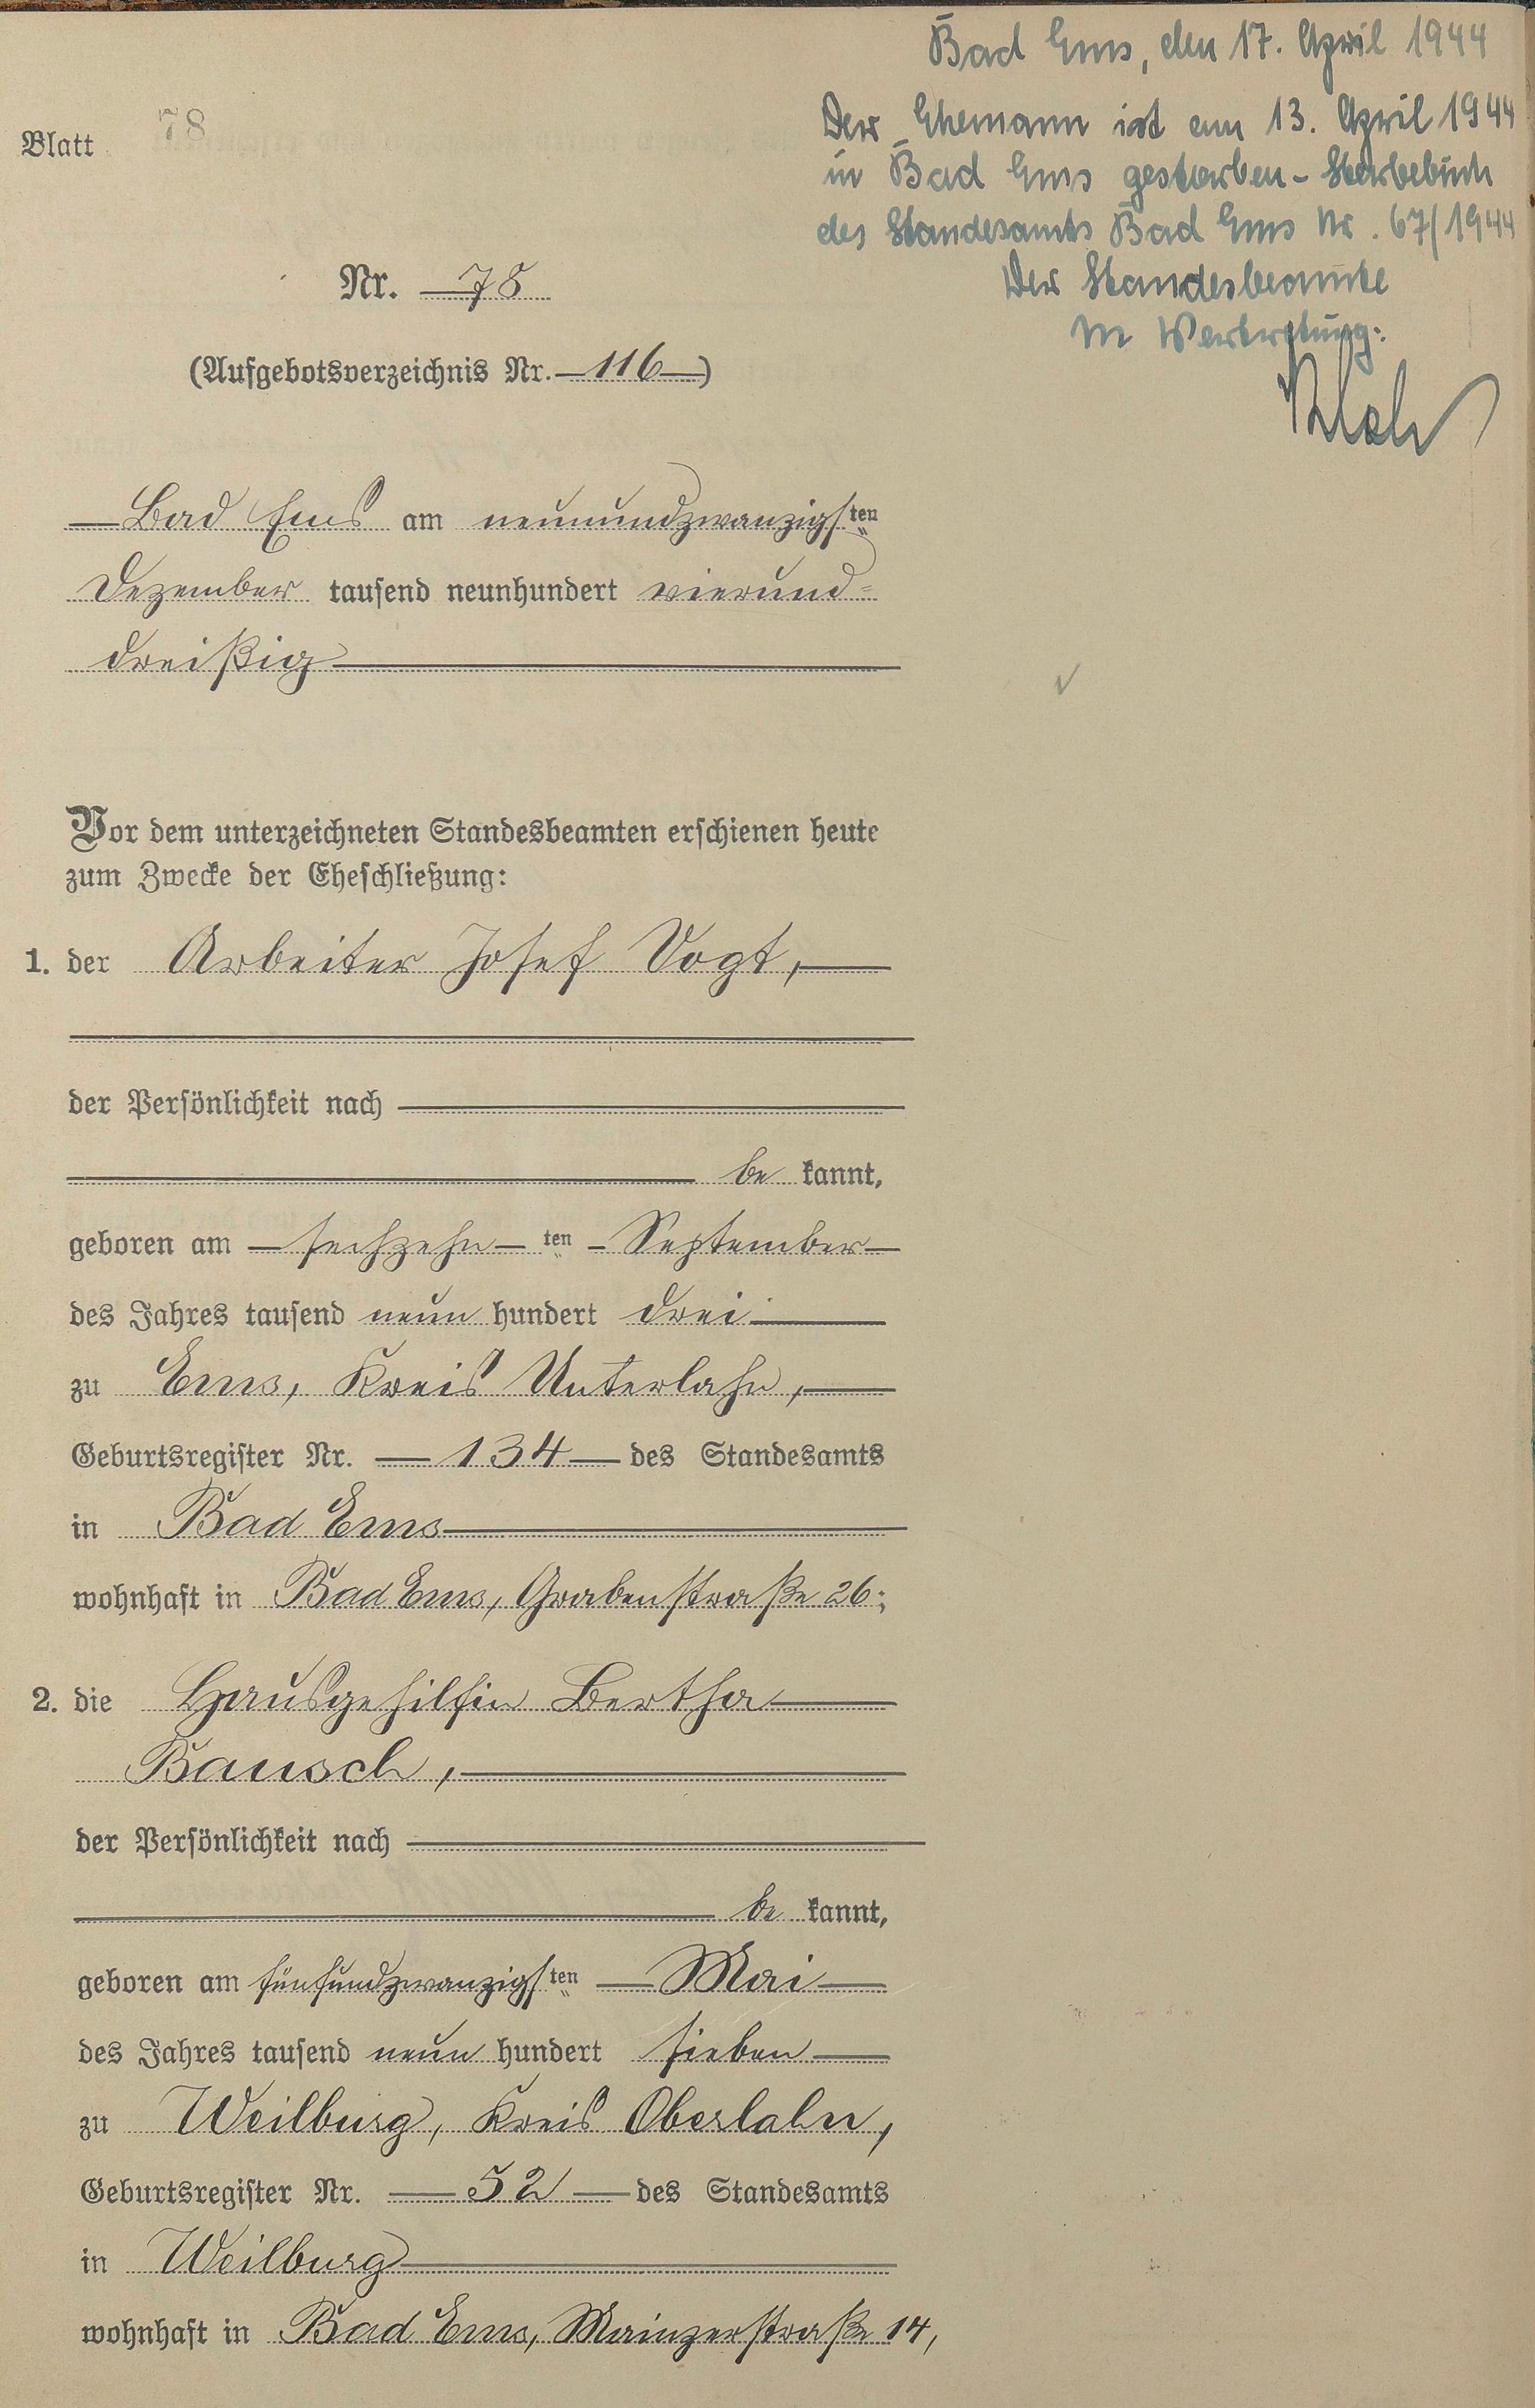 Bad Ems, den 17. April 1944
Der Ehemann ist am 13. April 1944
in Bad Ems gestorben - Sterbebuch
des Standesamts Bad Ems Nr. 67/1944
Der Standesbeamte
In Vertretung:
Blatt 78
Nr. 78
(Aufgebotsverzeichnis Nr. 116)
Bad Ems am neunundzwanzigsten
Dezember tausend neunhundert vierund-
dreißig
Vor dem unterzeichneten Standesbeamten erschienen heute
zum Zwecke der Eheschließung:
1. der Arbeiter Josef Vogt,
der Persönlichkeit nach
be kannt,
geboren am sechzehn ten September
des Jahres tausend neun hundert drei
zu Ems, Kreis Unterlahn,
Geburtsregister Nr. 134 des Standesamts
in Bad Ems
wohnhaft in Bad Ems, Grabenstraße 26;
2. die Hausgehilfin Bertha
Bausch,
der Persönlichkeit nach
be kannt,
geboren am fünfundzwanzigsten Mai
des Jahres tausend neun hundert sieben
zu Weilburg, Kreis Oberlahn,
Geburtsregister Nr. 52 des Standesamts
in Weilburg
wohnhaft in Bad Ems, Mainzerstraße 14,